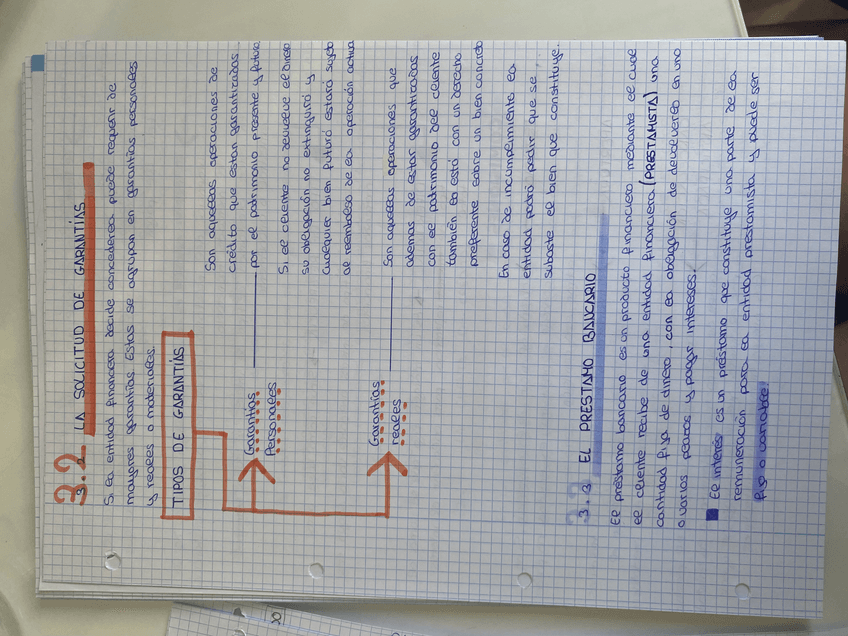 3.2. LA SOLICITUD DE GARANTÍAS
Si la entidad financiera decide concederla puede requerir de
mayores garantías. Estas se agrupan en garantías personales
y reales o materiales.
TIPOS DE GARANTÍAS
Garantías
Personales
Son aquellas operaciones de
crédito que estan garantizadas
por el patrimonio presente y futuro
Si el cliente no devuelve el dinero
su obligación no extinguirá y
cualquier bien futuro estará sujeto
al reembolso de la operación activa
Garantías
reales
Son aquellas operaciones que
además de estar garantizadas
con el patrimonio del cliente
también lo está con un derecho
preferente sobre un bien concreto
En caso de incumplimiento la
entidad podrá pedir que se
subaste el bien que constituye.
3.3 EL PRESTAMO BANCARIO
El préstamo bancario es un producto financiero mediante el cual
el cliente recibe de una entidad financiera (PRESTAMISTA) una
cantidad fija de dinero, con la obligación de devolverlo en uno
o varios plazos y pagar intereses.
El interés es un préstamo que constituye una parte de la
remuneración para la entidad prestamista y puede ser
fijo o variable.